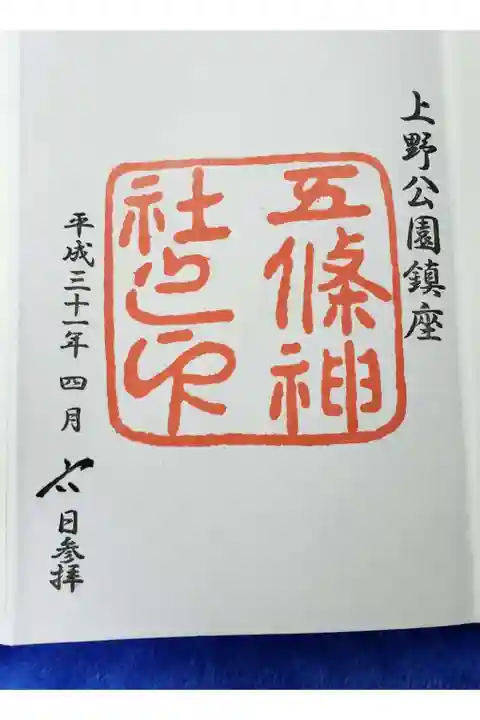 上野公園鎮座
五條神
社之印
平成三十一年 四月六日参拝